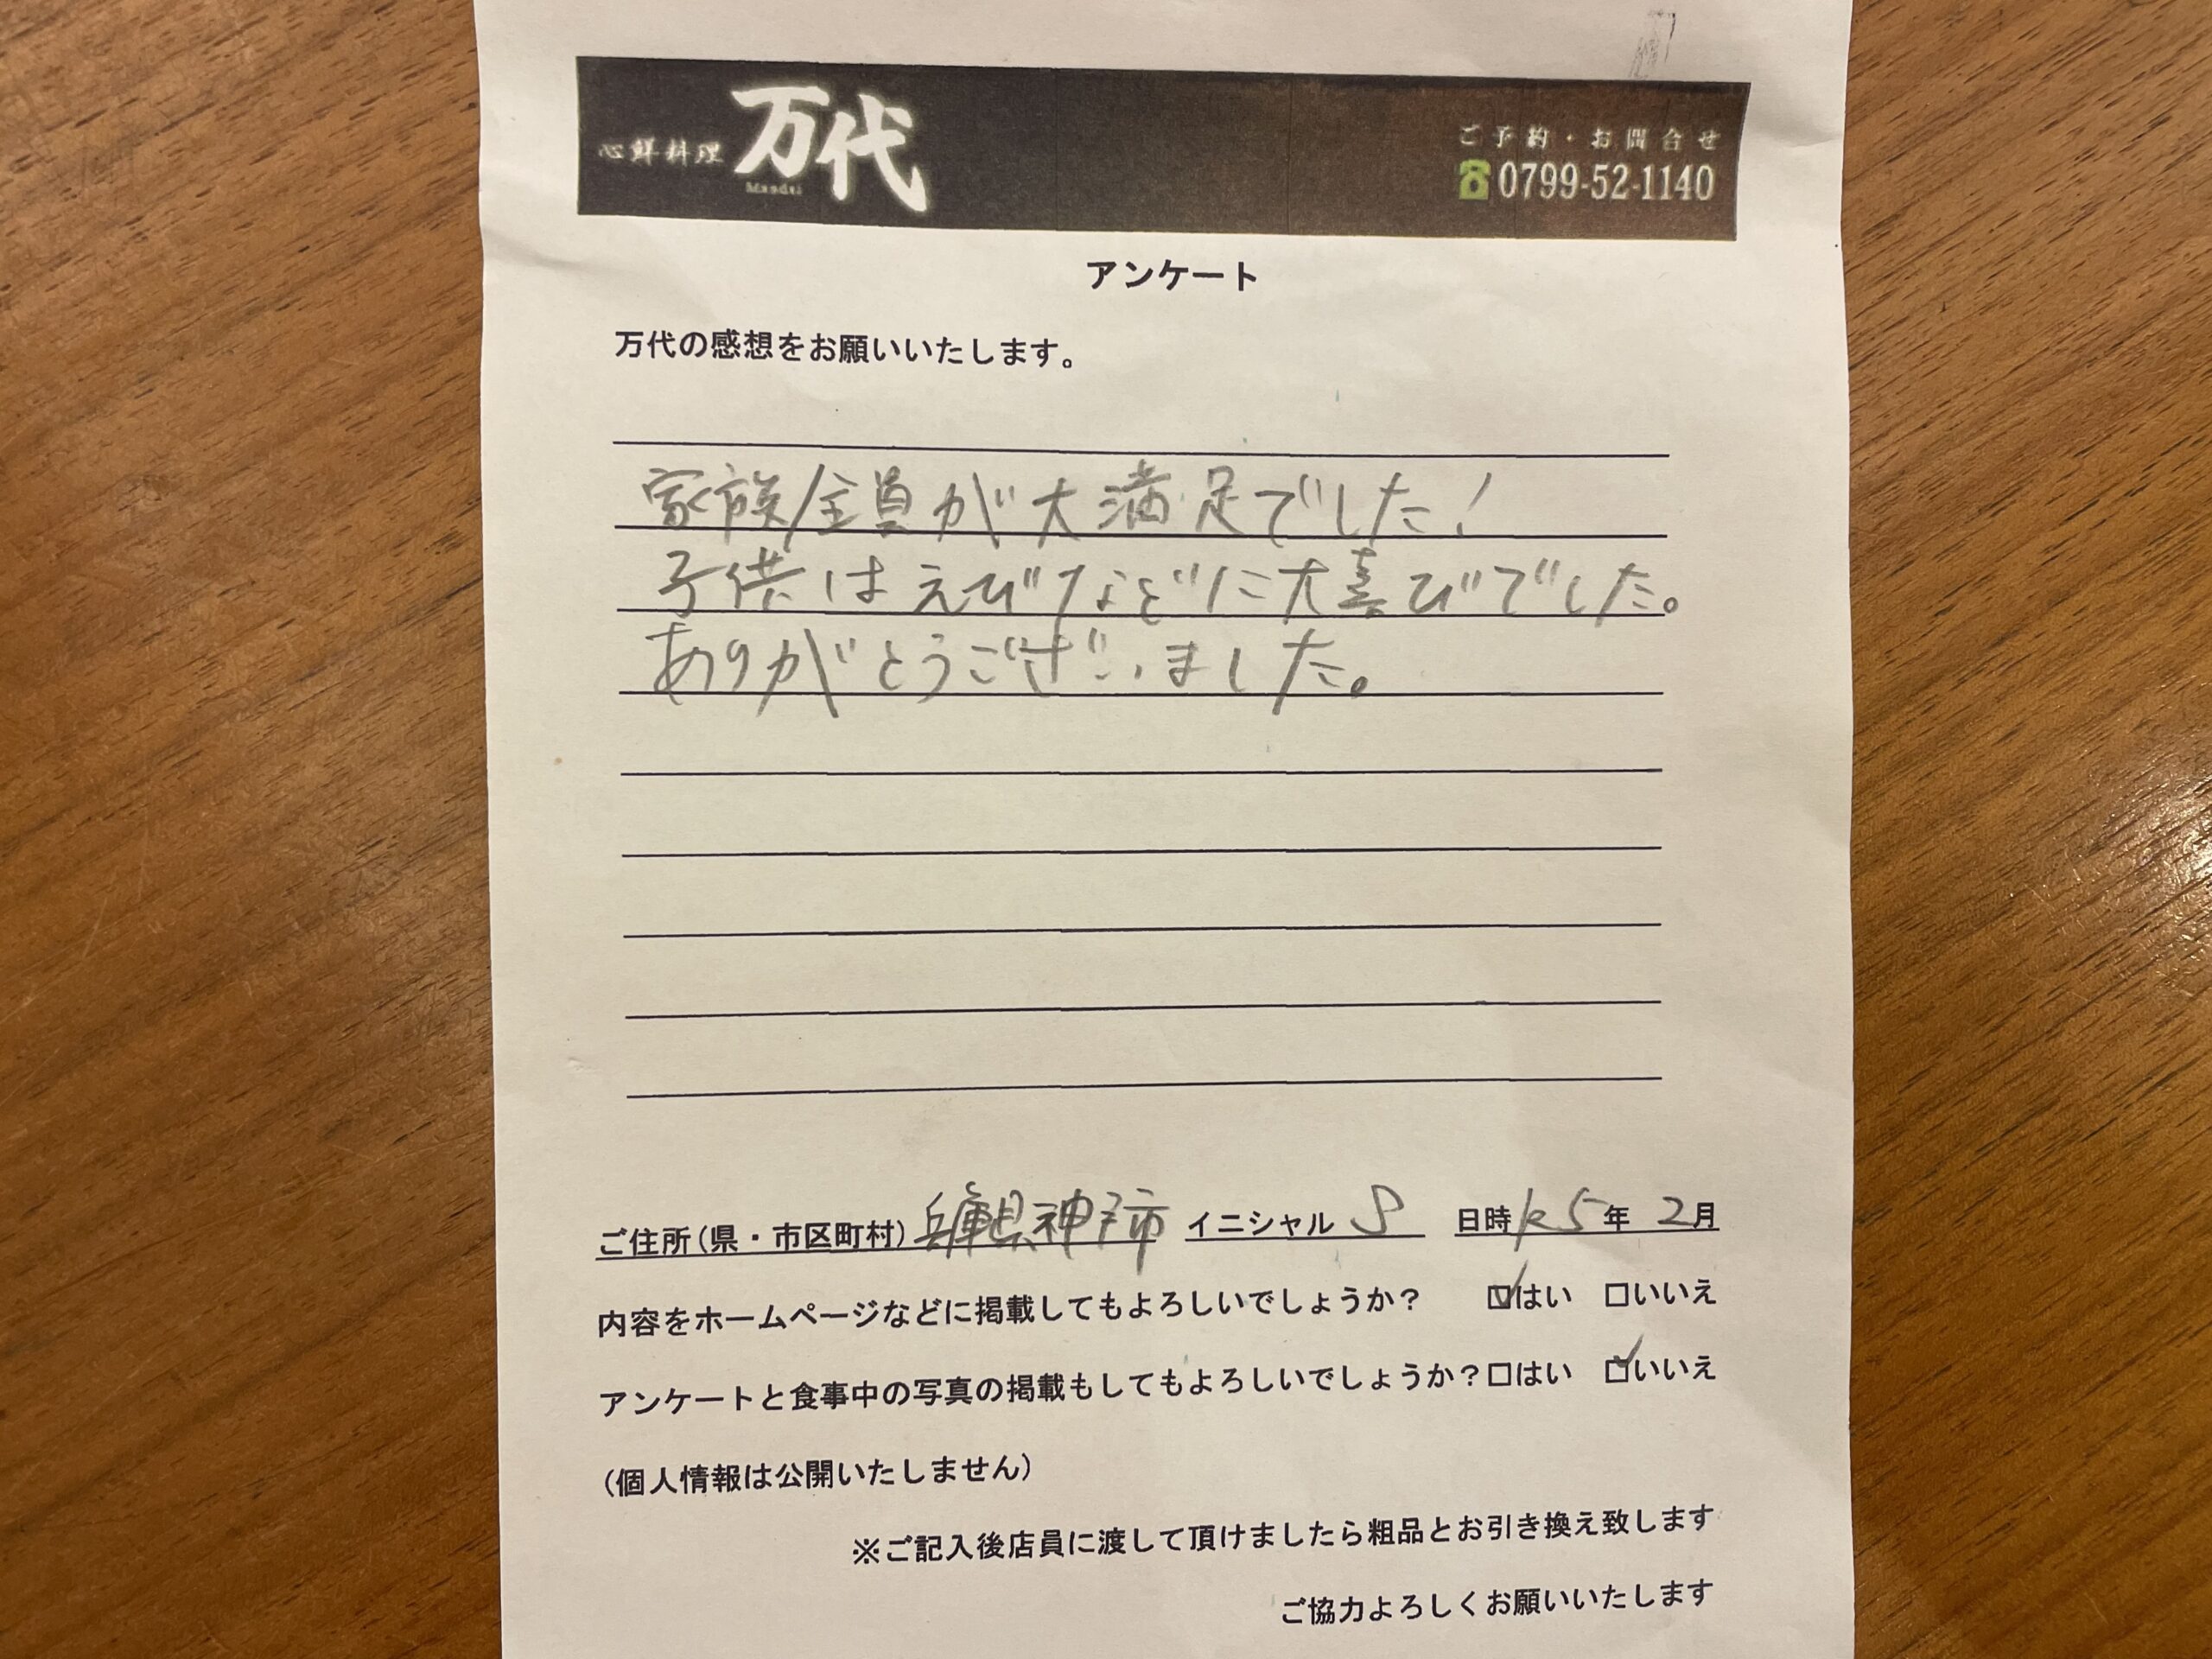 心鮮料理 万代 Mandai
ご予約・お問合せ
0799-52-1140
アンケート
万代の感想をお願いいたします。
家族全員が大満足でした!
子供はえびなどに大喜びでした。
ありがとうございました。
ご住所(県・市区町村) 兵庫県神戸市 イニシャル S 日時 R5年 2月
内容をホームページなどに掲載してもよろしいでしょうか? ☑はい □いいえ
アンケートと食事中の写真の掲載もしてもよろしいでしょうか?□はい ☑いいえ
(個人情報は公開いたしません)
※ご記入後店員に渡して頂けましたら粗品とお引き換え致します
ご協力よろしくお願いいたします